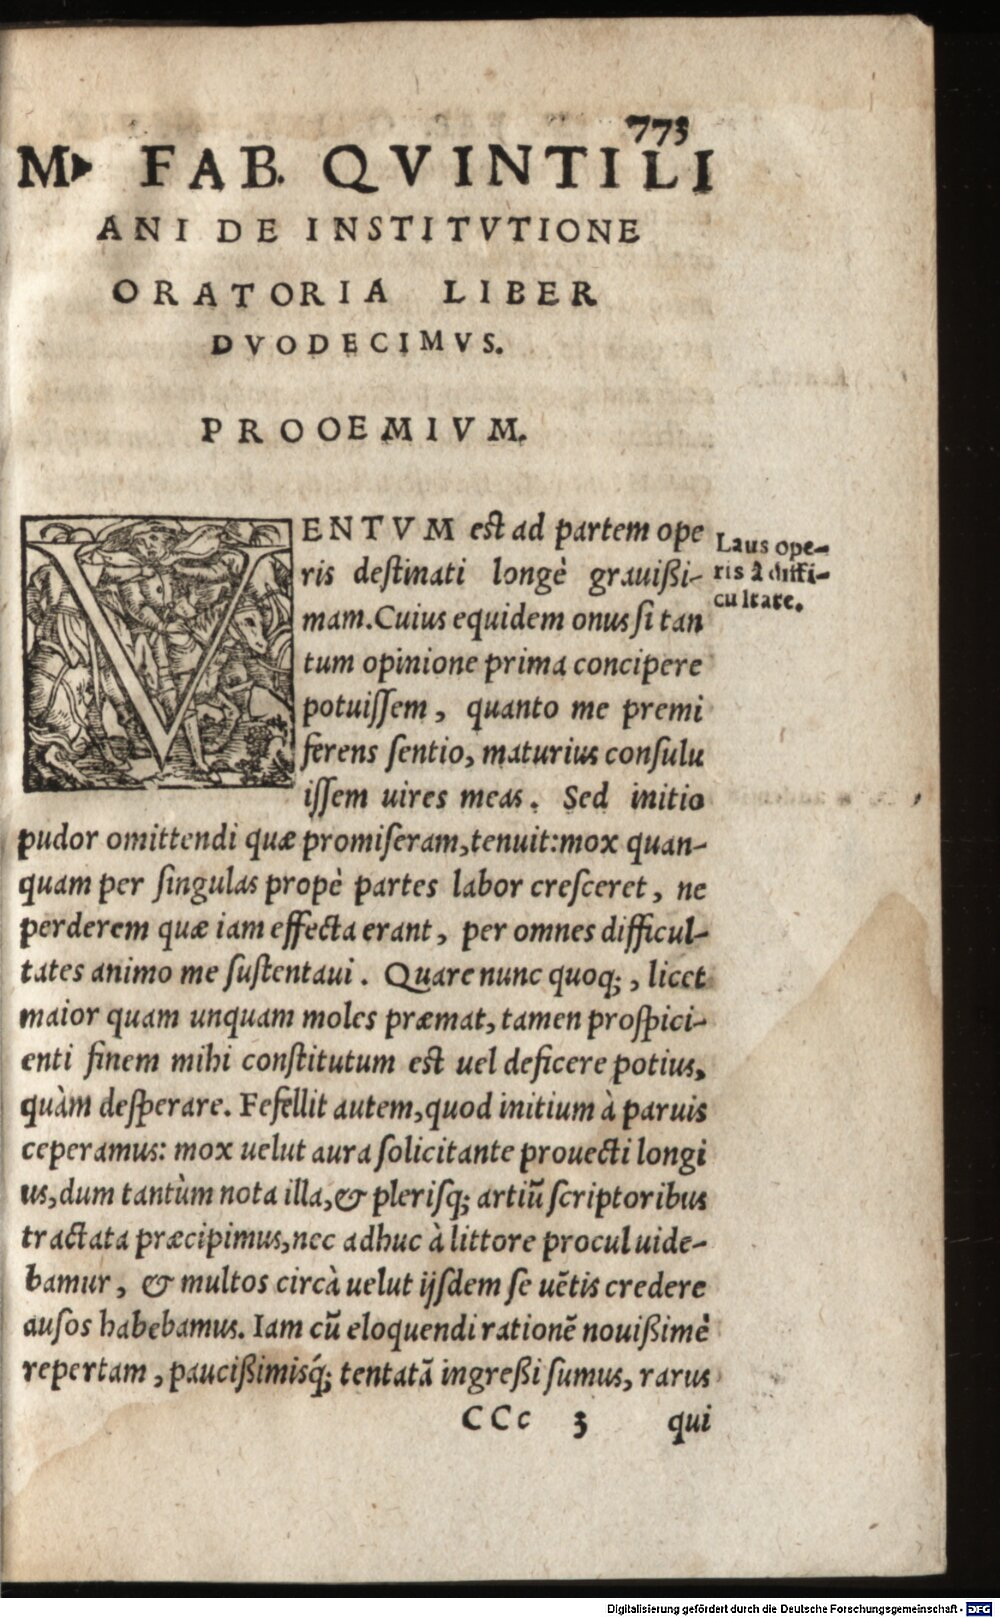 773
M. FAB. QVINTILI
ANI DE INSTITVTIONE
ORATORIA LIBER
DVODECIMVS.
PROOEMIVM.
VENTVM est ad partem ope
ris destinati longè grauißi-
mam. Cuius equidem onus si tan
tum opinione prima concipere
potuissem, quanto me premi
ferens sentio, maturius consulu
issem uires meas. Sed initio
pudor omittendi quæ promiseram, tenuit: mox quan-
quam per singulas propè partes labor cresceret, ne
perderem quæ iam effecta erant, per omnes difficul-
tates animo me sustentaui. Quare nunc quoq;, licet
maior quam unquam moles præmat, tamen prospici-
enti finem mihi constitutum est uel deficere potius,
quàm desperare. Fefellit autem, quod initium à paruis
ceperamus: mox uelut aura solicitante prouecti longi
us, dum tantùm nota illa, & plerisq; artiū scriptoribus
tractata præcipimus, nec adhuc à littore procul uide-
bamur, & multos circà uelut ijsdem se uētis credere
ausos habebamus. Iam cū eloquendi rationē nouißimè
repertam, paucißimisq́; tentatā ingreßi sumus, rarus
CCc 3 qui
Laus ope-
ris à diffi-
cultate.
Digitalisierung gefördert durch die Deutsche Forschungsgemeinschaft - DFG